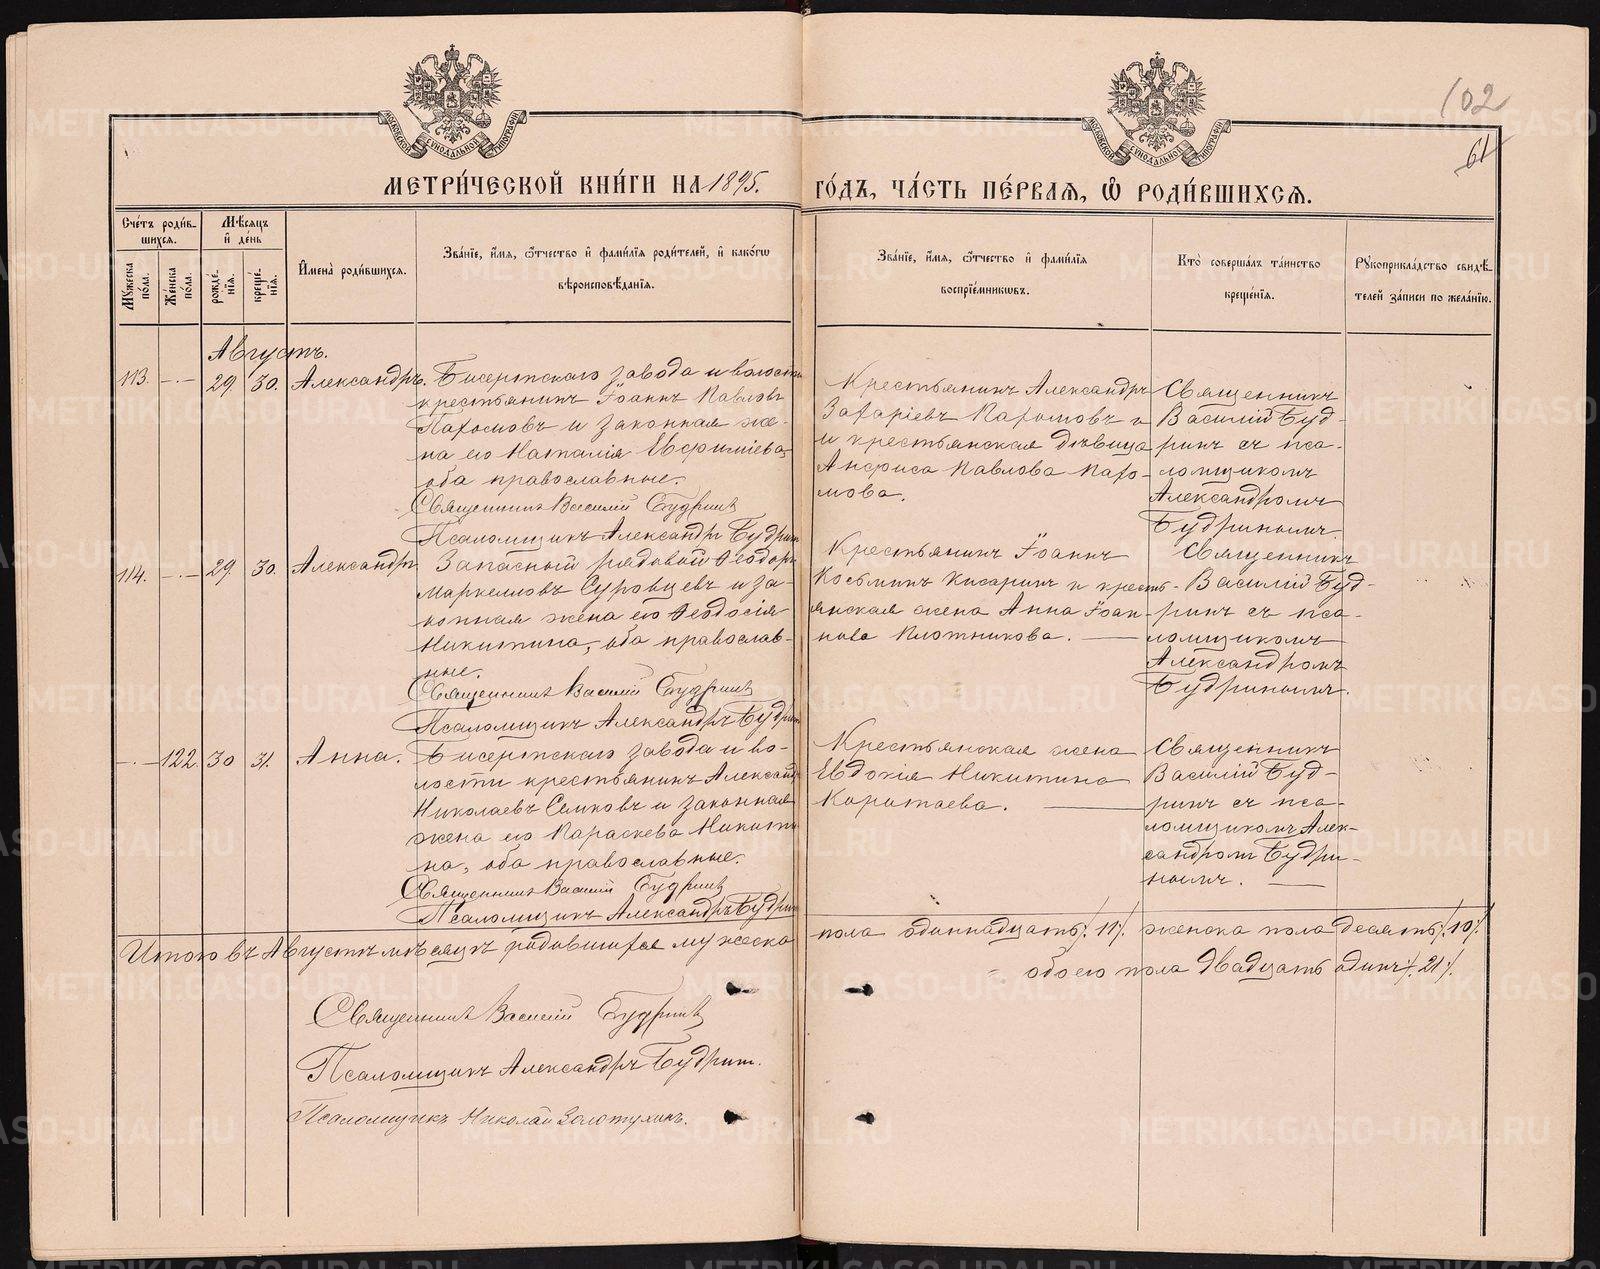 102
61
МОСКОВСКОЙ СИНОДАЛЬНОЙ ТИПОГРАФІИ
МОСКОВСКОЙ СИНОДАЛЬНОЙ ТИПОГРАФІИ
МЕТРИ́ЧЕСКОЙ КНИ́ГИ НА 1895. ГО́ДЪ, ЧА́СТЬ ПЕ́РВАЯ, Ѡ РОДИ́ВШИХСЯ.
Сче́тъ роди́в-
шихся.
Мѣ́сяцъ
и҆ де́нь
Му́жеска
по́ла.
Же́нска
по́ла.
рожде́-
нїя.
креще́-
нїя.
И҆мена̀ роди́вшихся.
Зва́нїе, и҆́мя, ѻ҆́тчество и҆ фами́лїя роди́телей, и҆ како́гѡ
вѣроисповѣ́данїя.
Зва́нїе, и҆́мя, ѻ҆́тчество и҆ фами́лїя
воспрїе́мникѡвъ.
Кто̀ соверша́лъ та́инство
креще́нїя.
Рꙋкоприкла́дство свидѣ́-
телей за́писи по жела́нїю.
Августъ.
113. —.— 29. 30. Александръ. Бисертскаго завода и волости
крестьянинъ Іоаннъ Павловъ
Пахомовъ и законная же-
на его Наталія Евфиміева,
оба православные.
Священникъ Василій Будринъ
Псаломщикъ Александръ Будринъ
Крестьянинъ Александръ
Захаріевъ Пахомовъ и
и крестьянская дѣвица
Анфиса Павлова Пахо-
мова.
Священникъ
Василій Буд-
ринъ съ пса-
ломщикомъ
Александромъ
Будринымъ.
114. —.— 29. 30. Александръ Запасный рядовой Ѳеодоръ
Маркелловъ Суровцевъ и за-
конная жена его Ѳеодосія
Никитина, оба православ-
ные.
Священникъ Василій Будринъ
Псаломщикъ Александръ Будринъ
Крестьянинъ Іоаннъ
Косьминъ Кисаринъ и кресть-
янская жена Анна Іоан-
нова Плотникова. —
Священникъ
Василій Буд-
ринъ съ пса-
ломщикомъ
Александромъ
Будринымъ.
—.— 122. 30 31. Анна. Бисертскаго завода и во-
лости крестьянинъ Александръ
Николаевъ Семковъ и законная
жена его Параскева Никити-
на, оба православные.
Священникъ Василій Будринъ
Псаломщикъ Александръ Будринъ
Крестьянская жена
Евдокія Никитина
Коротаева. —
Священникъ
Василій Буд-
ринъ съ пса-
ломщикомъ Алек-
сандромъ Будри-
нымъ. —
Итого въ Августѣ мѣсяцѣ родившихся мужеска пола одиннадцать /.11/. женска пола десять /.10/.
обоего пола двадцать одинъ /.21/.
Священникъ Василій Будринъ
Псаломщикъ Александръ Будрин.
Псаломщикъ Николай Золотухинъ.
METRIKI.GASO-URAL.RU